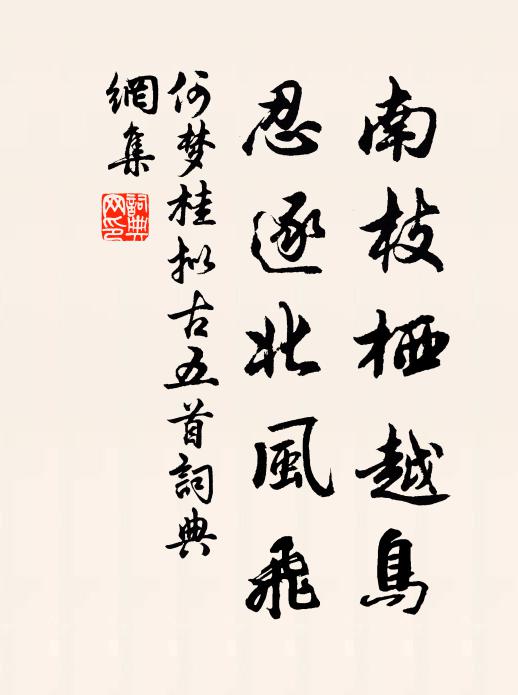 南枝栖越鳥
忍逐北風飛
何梦桂拟古五首詞典
網集
詞典
网印